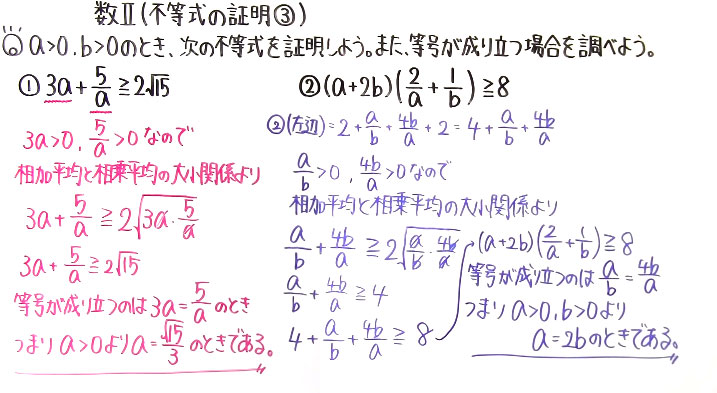 数Ⅱ(不等式の証明③)
Q a>0, b>0のとき、次の不等式を証明しよう。また、等号が成り立つ場合を調べよう。
① 3a+5/a≧2√15
3a>0, 5/a>0なので
相加平均と相乗平均の大小関係より
3a+5/a≧2√(3a・5/a)
3a+5/a≧2√15
等号が成り立つのは3a=5/aのとき
つまりa>0よりa=√15/3のときである。
②(a+2b)(2/a+1/b)≧8
②(左辺)=2+a/b+4b/a+2=4+a/b+4b/a
a/b>0, 4b/a>0なので
相加平均と相乗平均の大小関係より
a/b+4b/a≧2√(a/b・4b/a)
a/b+4b/a≧4
4+a/b+4b/a≧8
(a+2b)(2/a+1/b)≧8
等号が成り立つのはa/b=4b/a
つまりa>0,b>0より
a=2bのときである。